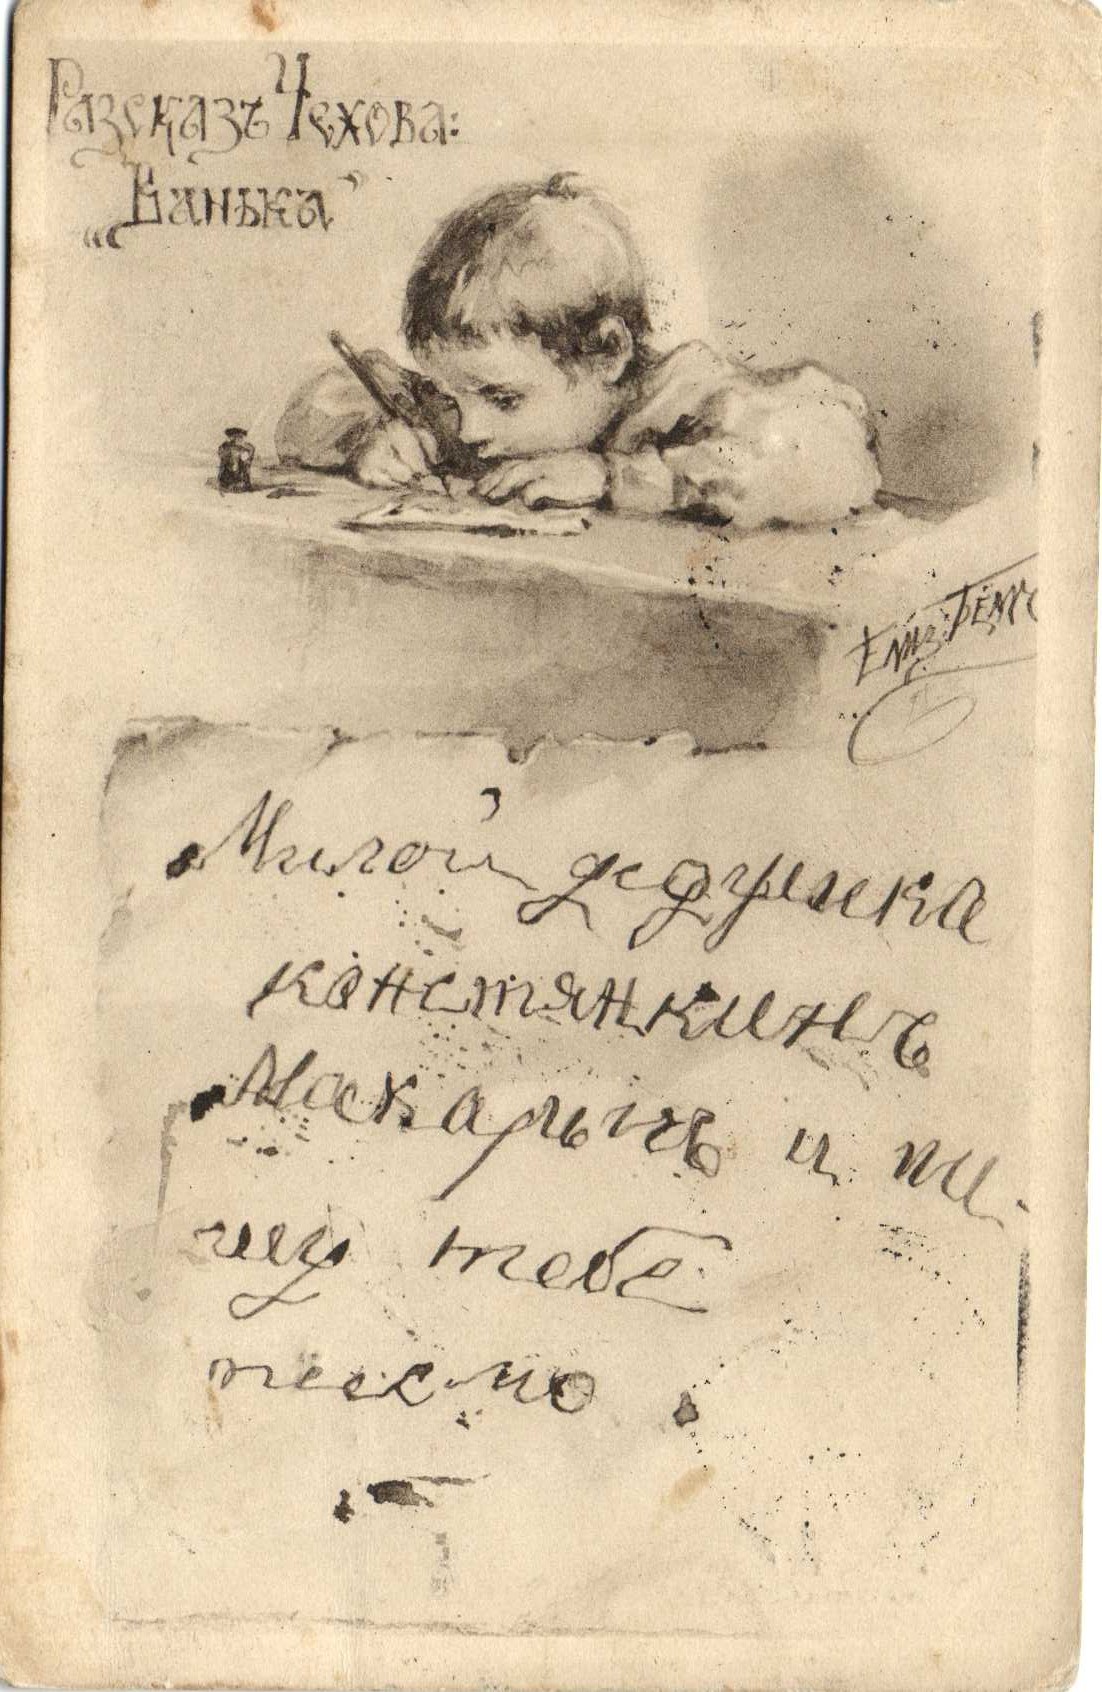 Разсказъ Чехова:
„Ванька”
Елиз. Бёмъ
Милой дедушка
констянкинъ
Макарычъ и пи-
шу тебе
писмо